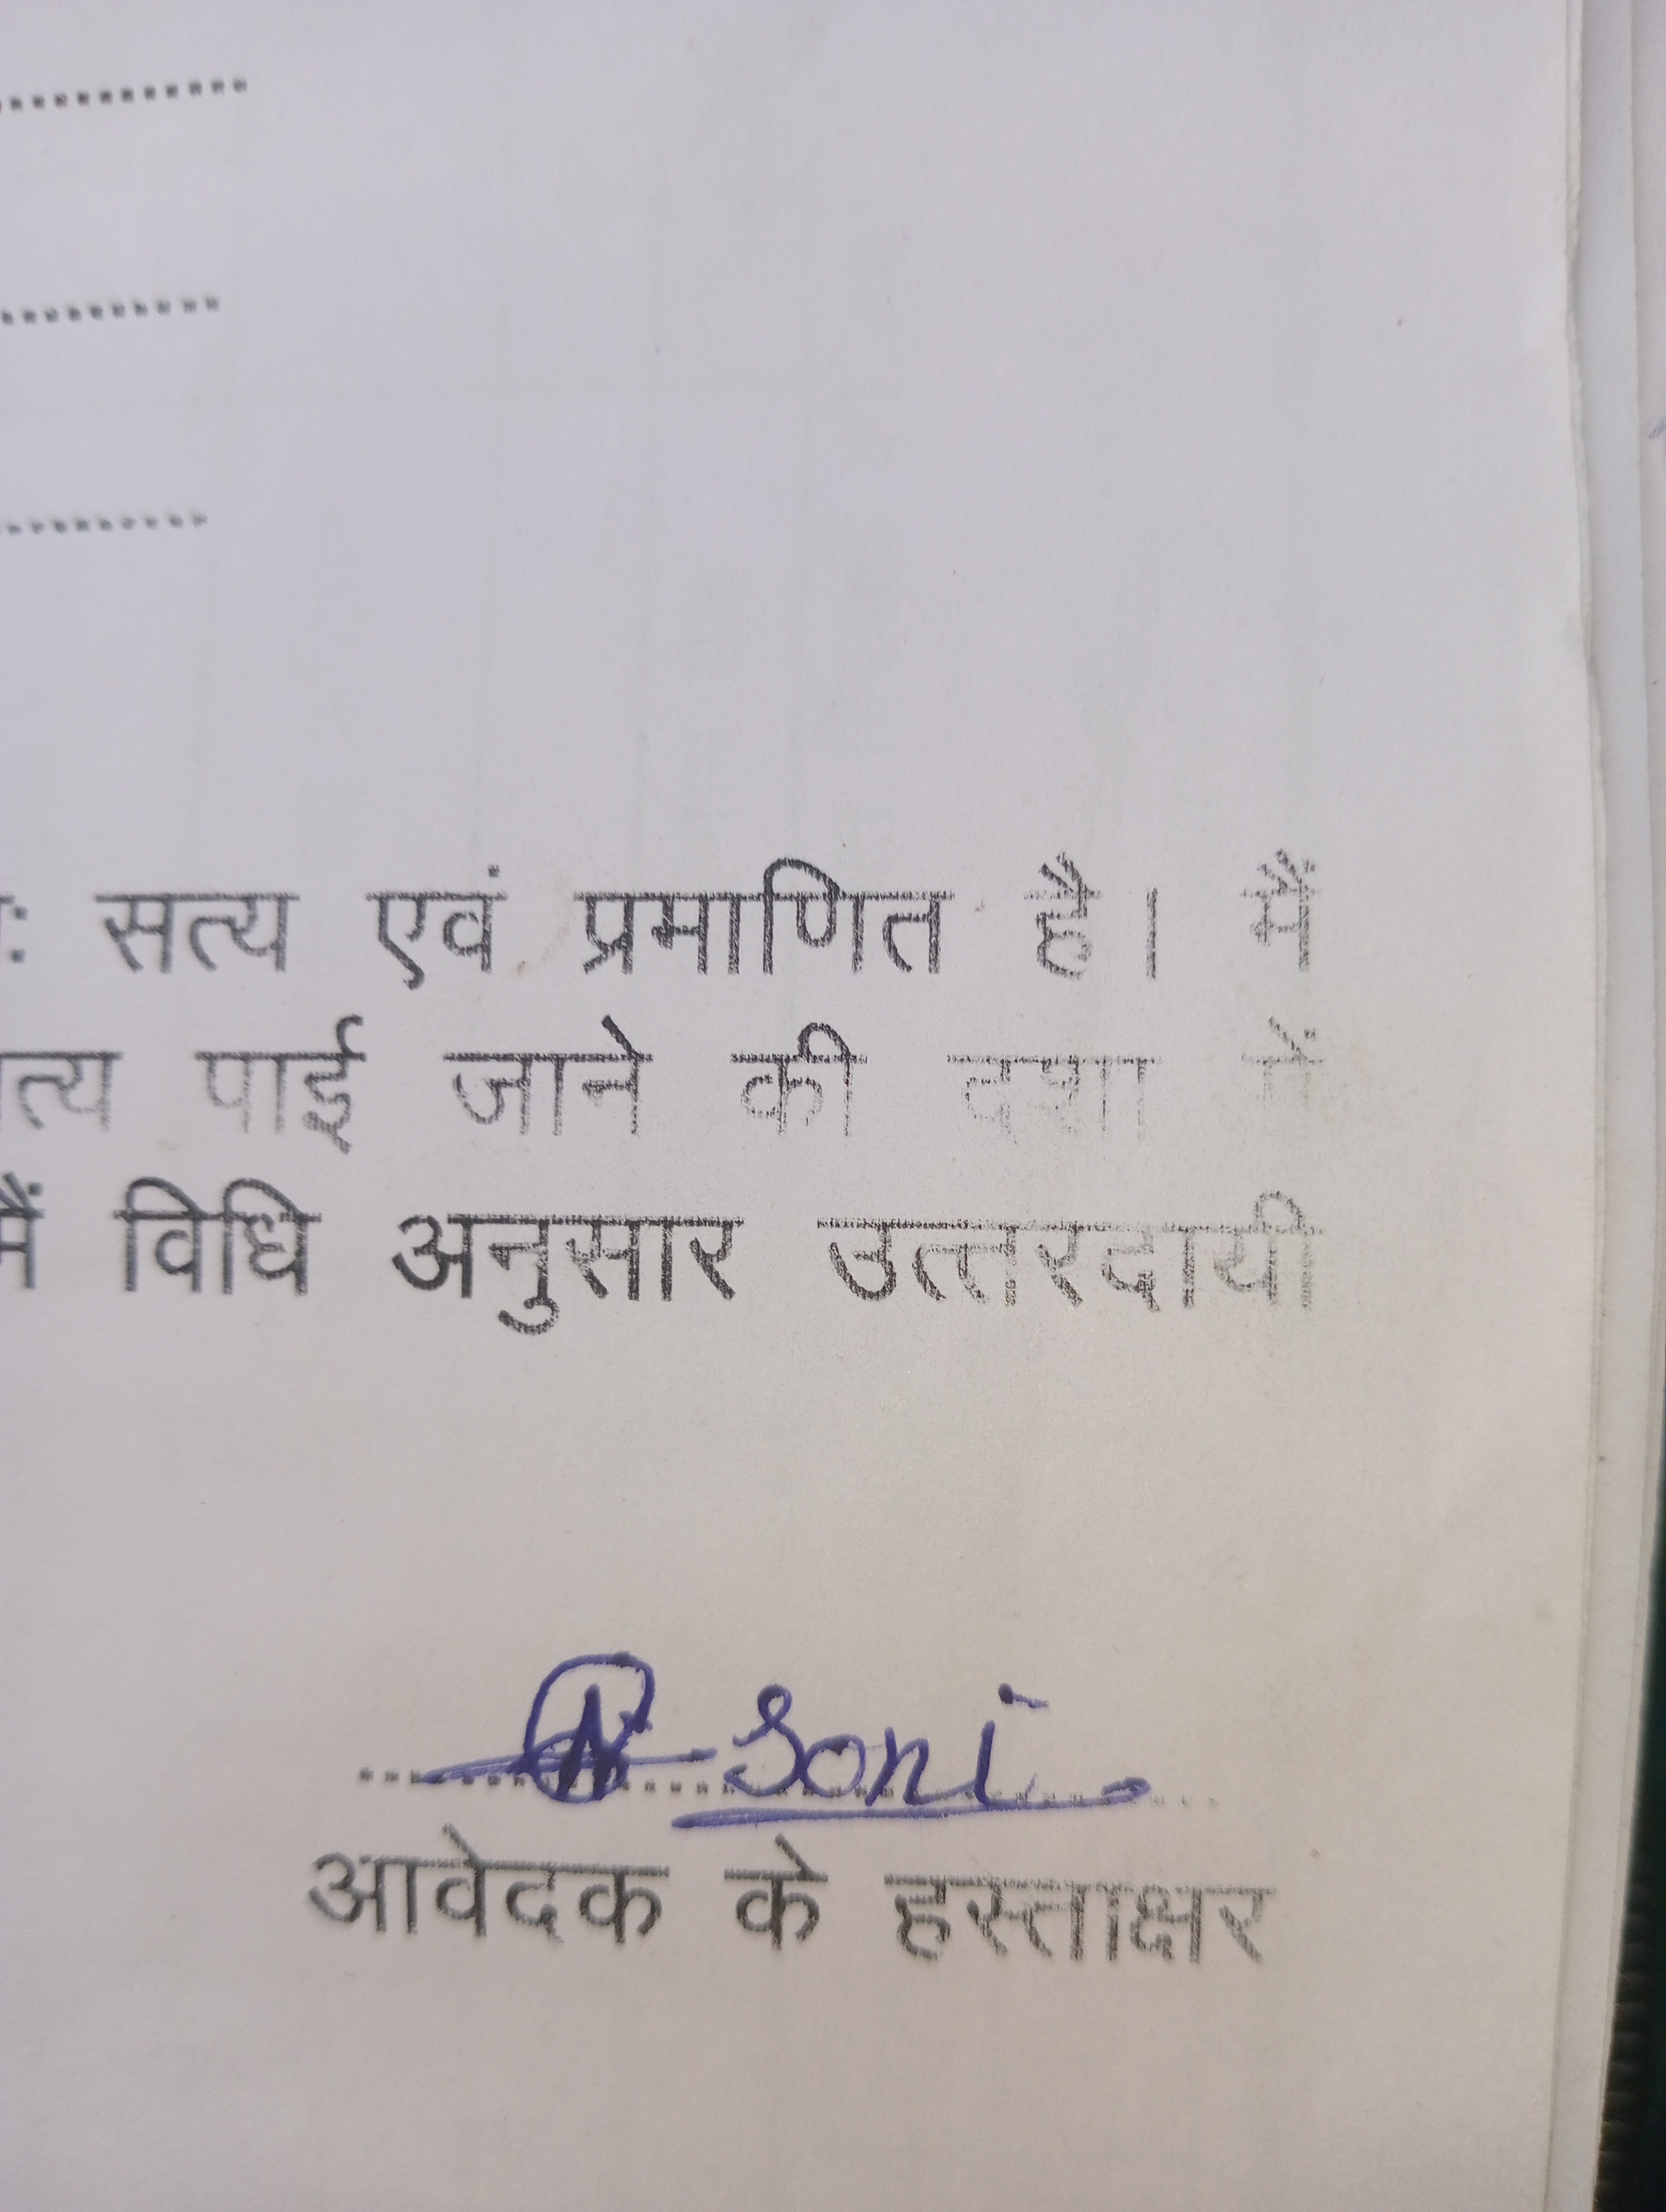 ः सत्य एवं प्रमाणित है। मैं
त्य पाई जाने की दशा में
मैं विधि अनुसार उत्तरदायी
Soni
आवेदक के हस्ताक्षर